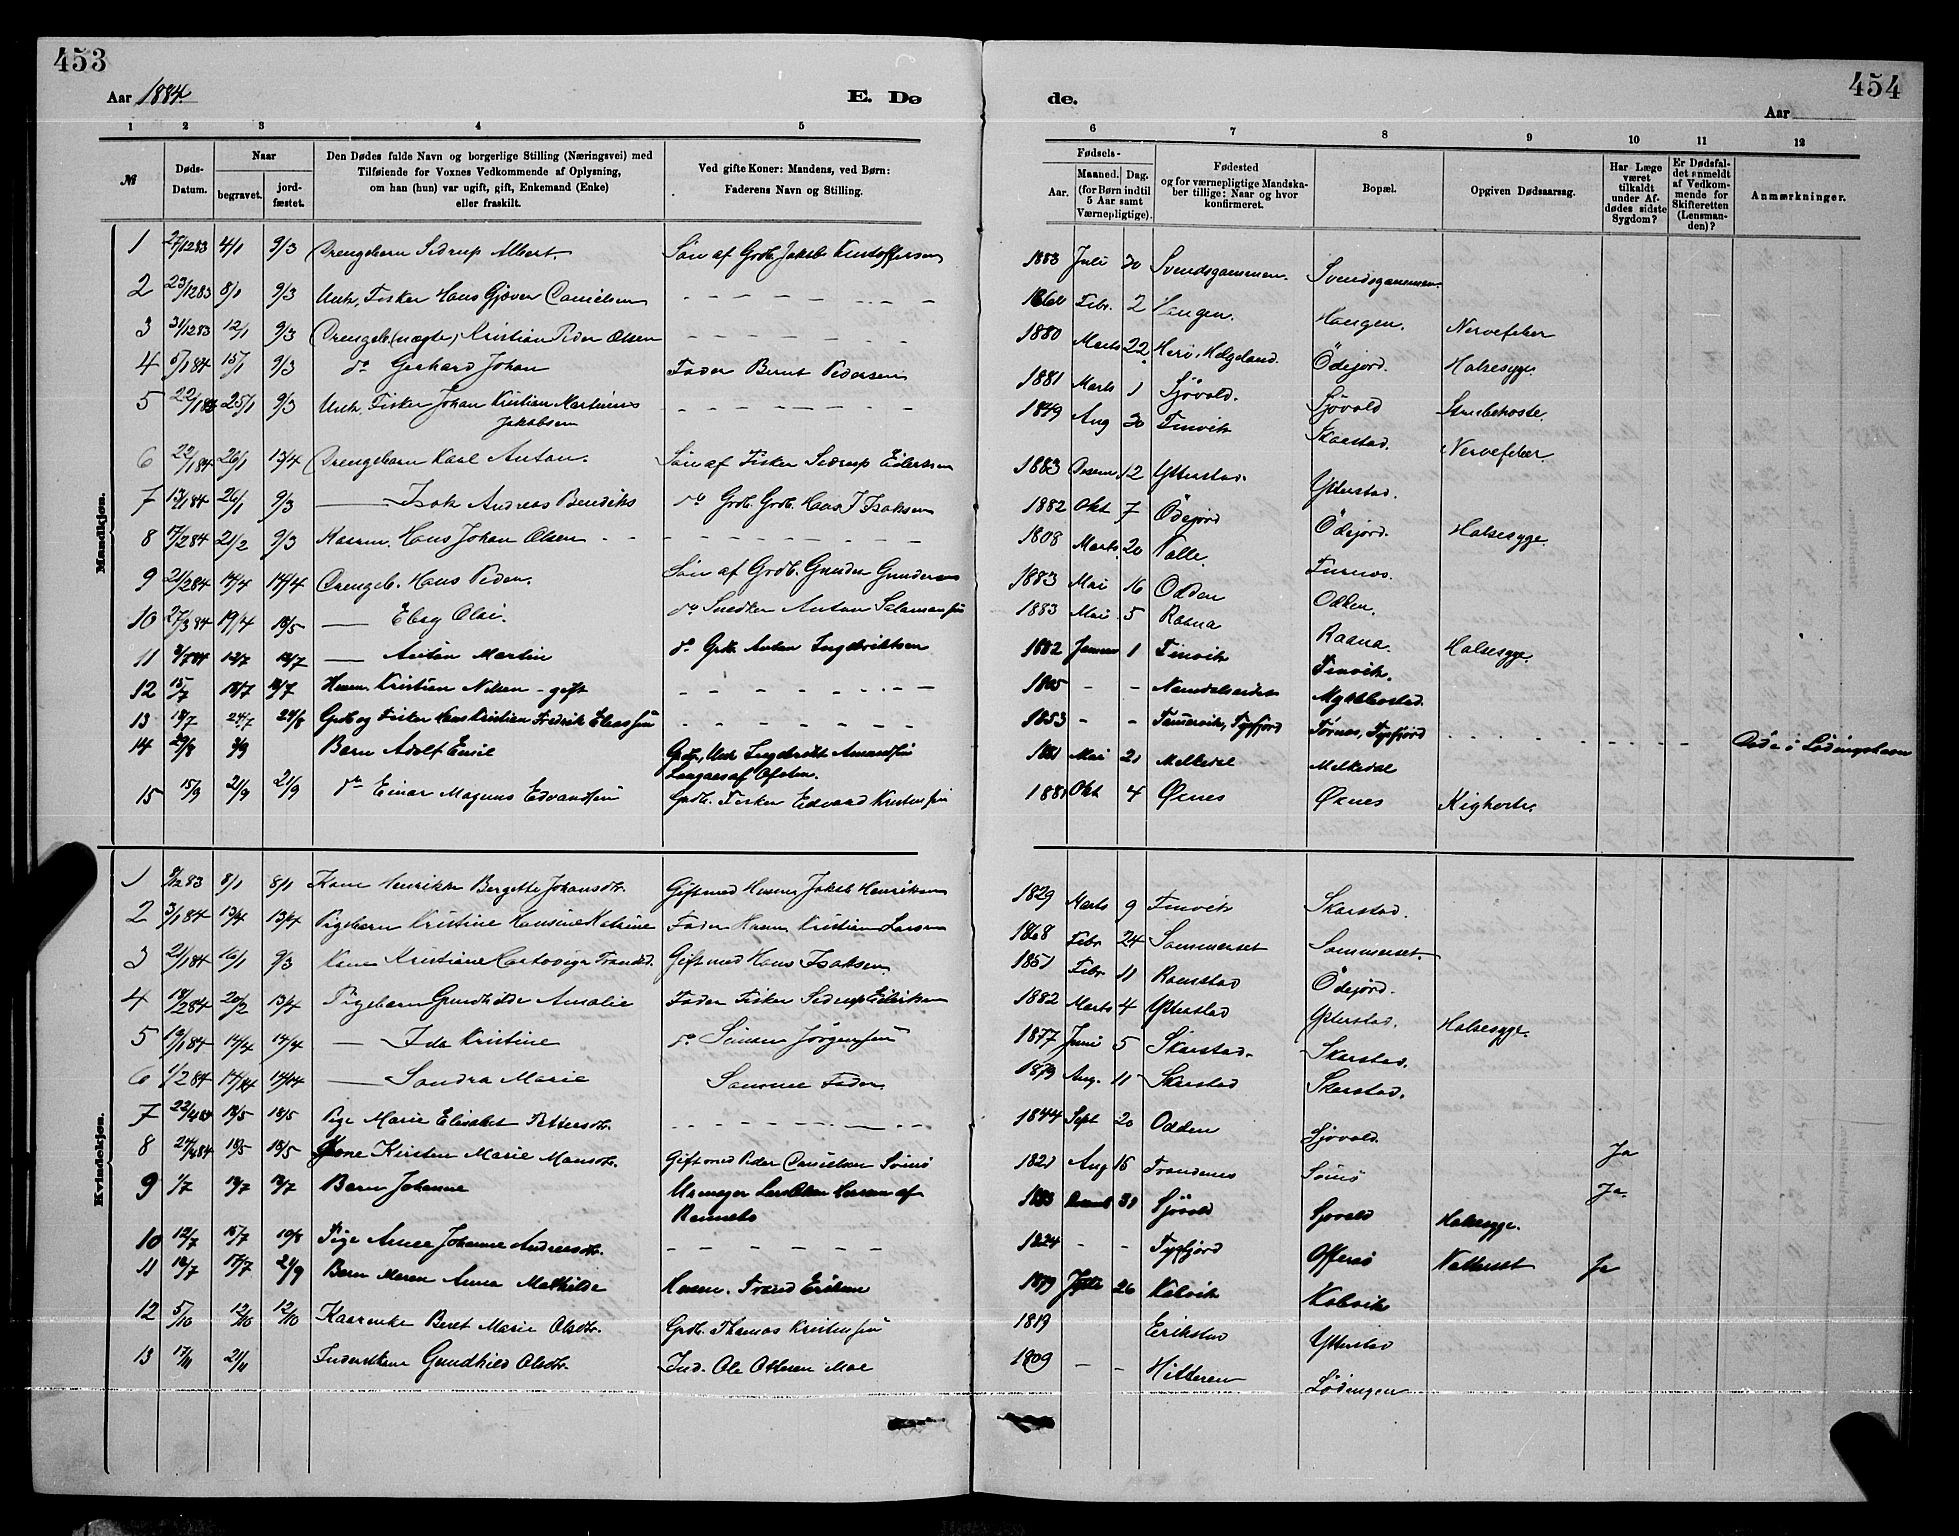 453
454
Aar 1884.
E. Dø
de.
Aar
1 2 3 4 5
6 7 8 9 10 11 12
№
Døds-Datum.
Naar
begravet.
jord-fæstet.
Den Dødes fulde Navn og borgerlige Stilling (Næringsvei) med
Tilføiende for Voxnes Vedkommende af Oplysning,
om han (hun) var ugift, gift, Enkemand (Enke)
eller fraskilt.
Ved gifte Koner: Mandens, ved Børn:
Faderens Navn og Stilling.
Fødsels-
Aar.
Maaned. Dag.
(for Børn indtil
5 Aar samt
Værnepligtige).
Fødested
og for værnepligtige Mandska-
ber tillige: Naar og hvor
konfirmeret.
Bopæl.
Opgiven Dødsaarsag.
Har Læge
været
tilkaldt
under Af-
dødes sidste
Sygdom?
Er Dødsfal-
det anmeldt
af Vedkom-
mende for
Skifteretten
(Lensman-
den)?
Anmærkninger.
Mandkjøn.
1 27/12 83 4/1 9/3 Drengebarn Sedrup Albert. Søn af Grdb. Jakob Kristoffersen 1883 Juli 30 Svendsgammen. Svendsgammen.
2 23/12 83 8/1 9/3 Unk. Fisker Hans Gjøver Danielsen Febr. 2 Haugen. Haugen. Nervefeber
3 31/12 83 12/1 9/3 Drengeb. (uægte) Kristian Peder Olsen 1880 Marts 22 Herö, Helgeland. Ödejord. Halsesyge
4 5/1 84 15/1 9/3 do Gerhard Johan Fader Bernt Pedersen 1881 Marts 1 Sjövold. Sjövold Strubehoste.
5 22/1 84 25/1 9/3 Unk. Fisker Johan Kristian Martinus
Jakobsen 1849 Aug 30 Finvik Skarstad. Nervefeber
6 22/1 84 26/1 13/4 Drengebarn Karl Anton. Søn af Fisker Sedrup Eilertsen 1883 Decem. 12 Ytterstad. Ytterstad.
7 13/1 84 26/1 9/3 Isak Andreas Bendiks do Grdb. Grdb. Hans J Isaksen 1882 Okt 7 Ödejord Ödejord. Halsesyge.
8 17/2 84 21/2 9/3 Kaarm. Hans Johan Olsen 1808 Marts 20 Valle. Furnes.
9 21/2 84 14/4 14/4 Drengeb. Hans Peder. Søn af Grdb. Gunder Gundersen 1883 Mai 16 Odden Odden.
10 27/3 84 19/4 18/5 Ebeg Olai. do Snedker Anton Salamonsen 1883 Mai 5 Raana Raana.
11 84 12/7 Anton Martin do Grdb. Anton Ingebriktsen 1882 Januar 1 Finvik Finvik. Halsesyge.
12 15/7 Husm. Kristian Nilsen - gift Namdalseidet Myklebostad
13 18/7 24/7 24/8 Grdb og Fisker Hans Kristian Fredrik Eliassen 1853 Tannervik, Tysfjord Tørnes, Tysfjord Døde i Lødingshavn
14 29/8 3/9 Barn Adolf Emil Grdbr, Unk Ingebrikt Amundsen
1881 Mai 21 Melkedal Melkedal
15 15/9 21/9 21/9 do Einar Magnus Edvardsen Grdb. Fisker Edvard Kristensen 1881 Okt 4 Øxnes Øxnes Kighoste.
Kvindekjøn.
1 83 8/1 8/1 Kone Henrikke Bergette Johansdtr. Gift med Husm. Jakob Henriksen 1829 Marts 9 Finvik Skarstad.
2 3/1 84 13/4 13/4 Pigebarn Kristine Hansine Katrine Fader Husm. Kristian Larsen 1868 Febr. 24 Sommerset Sommerset.
3 21/1 84 16/1 9/3 Kone Kristiane Gift med Hans Isaksen 1851 Febr. 11 Ramstad Ödejord.
4 18/2 84 20/2 13/4 Pigebarn Gunhilde Amalie Fader Fisker Sedrup Eilertsen 1882 Marts 4 Ytterstad Ytterstad. Halsesyge.
5 19/1 84 14/4 14/4 Ida Kristine do Simon Jörgensen 1877 Juni 5 Skarstad. Skarstad.
6 1/2 84 14/4 14/4 Sandra Marie Samme Fader 1879 Aug. 11 Skarstad Skarstad.
7 22/4 84 18/5 18/5 Pige Marie Elisabet Pettersdtr. 1844 Sept 20 Odden Sjövold.
8 24/4 84 18/5 18/5 Kone Kirsten Marie Mansdtr. Gift med Peder Danielsen 1821 Aug 15 Trondenes Ja
9 1/7 Barn Johanne Urmager Lars Olsen af
Sjövold Sjovold Halsesyge. Ja.
10 12/7 15/7 10/8 Pige Anne Johanne Andreasdtr. 1824 Tysfjord Offersø Ja
11 17/7 21/9 Barn Maren Anna Mathilde Husm. Trond Eriksen 1879 26 Kalvik Kalvik
12 5/10 12/10 12/10 Kaarenke Beret Marie Olsdtr. Grdb. Thomas Kristensen 1819 Erikstad Ytterstad
13 17/11 21/11 Inderstkone Gundhild Olsdtr. Ind. Ole Ottesen Moe 1809 Hitteren Lødingen